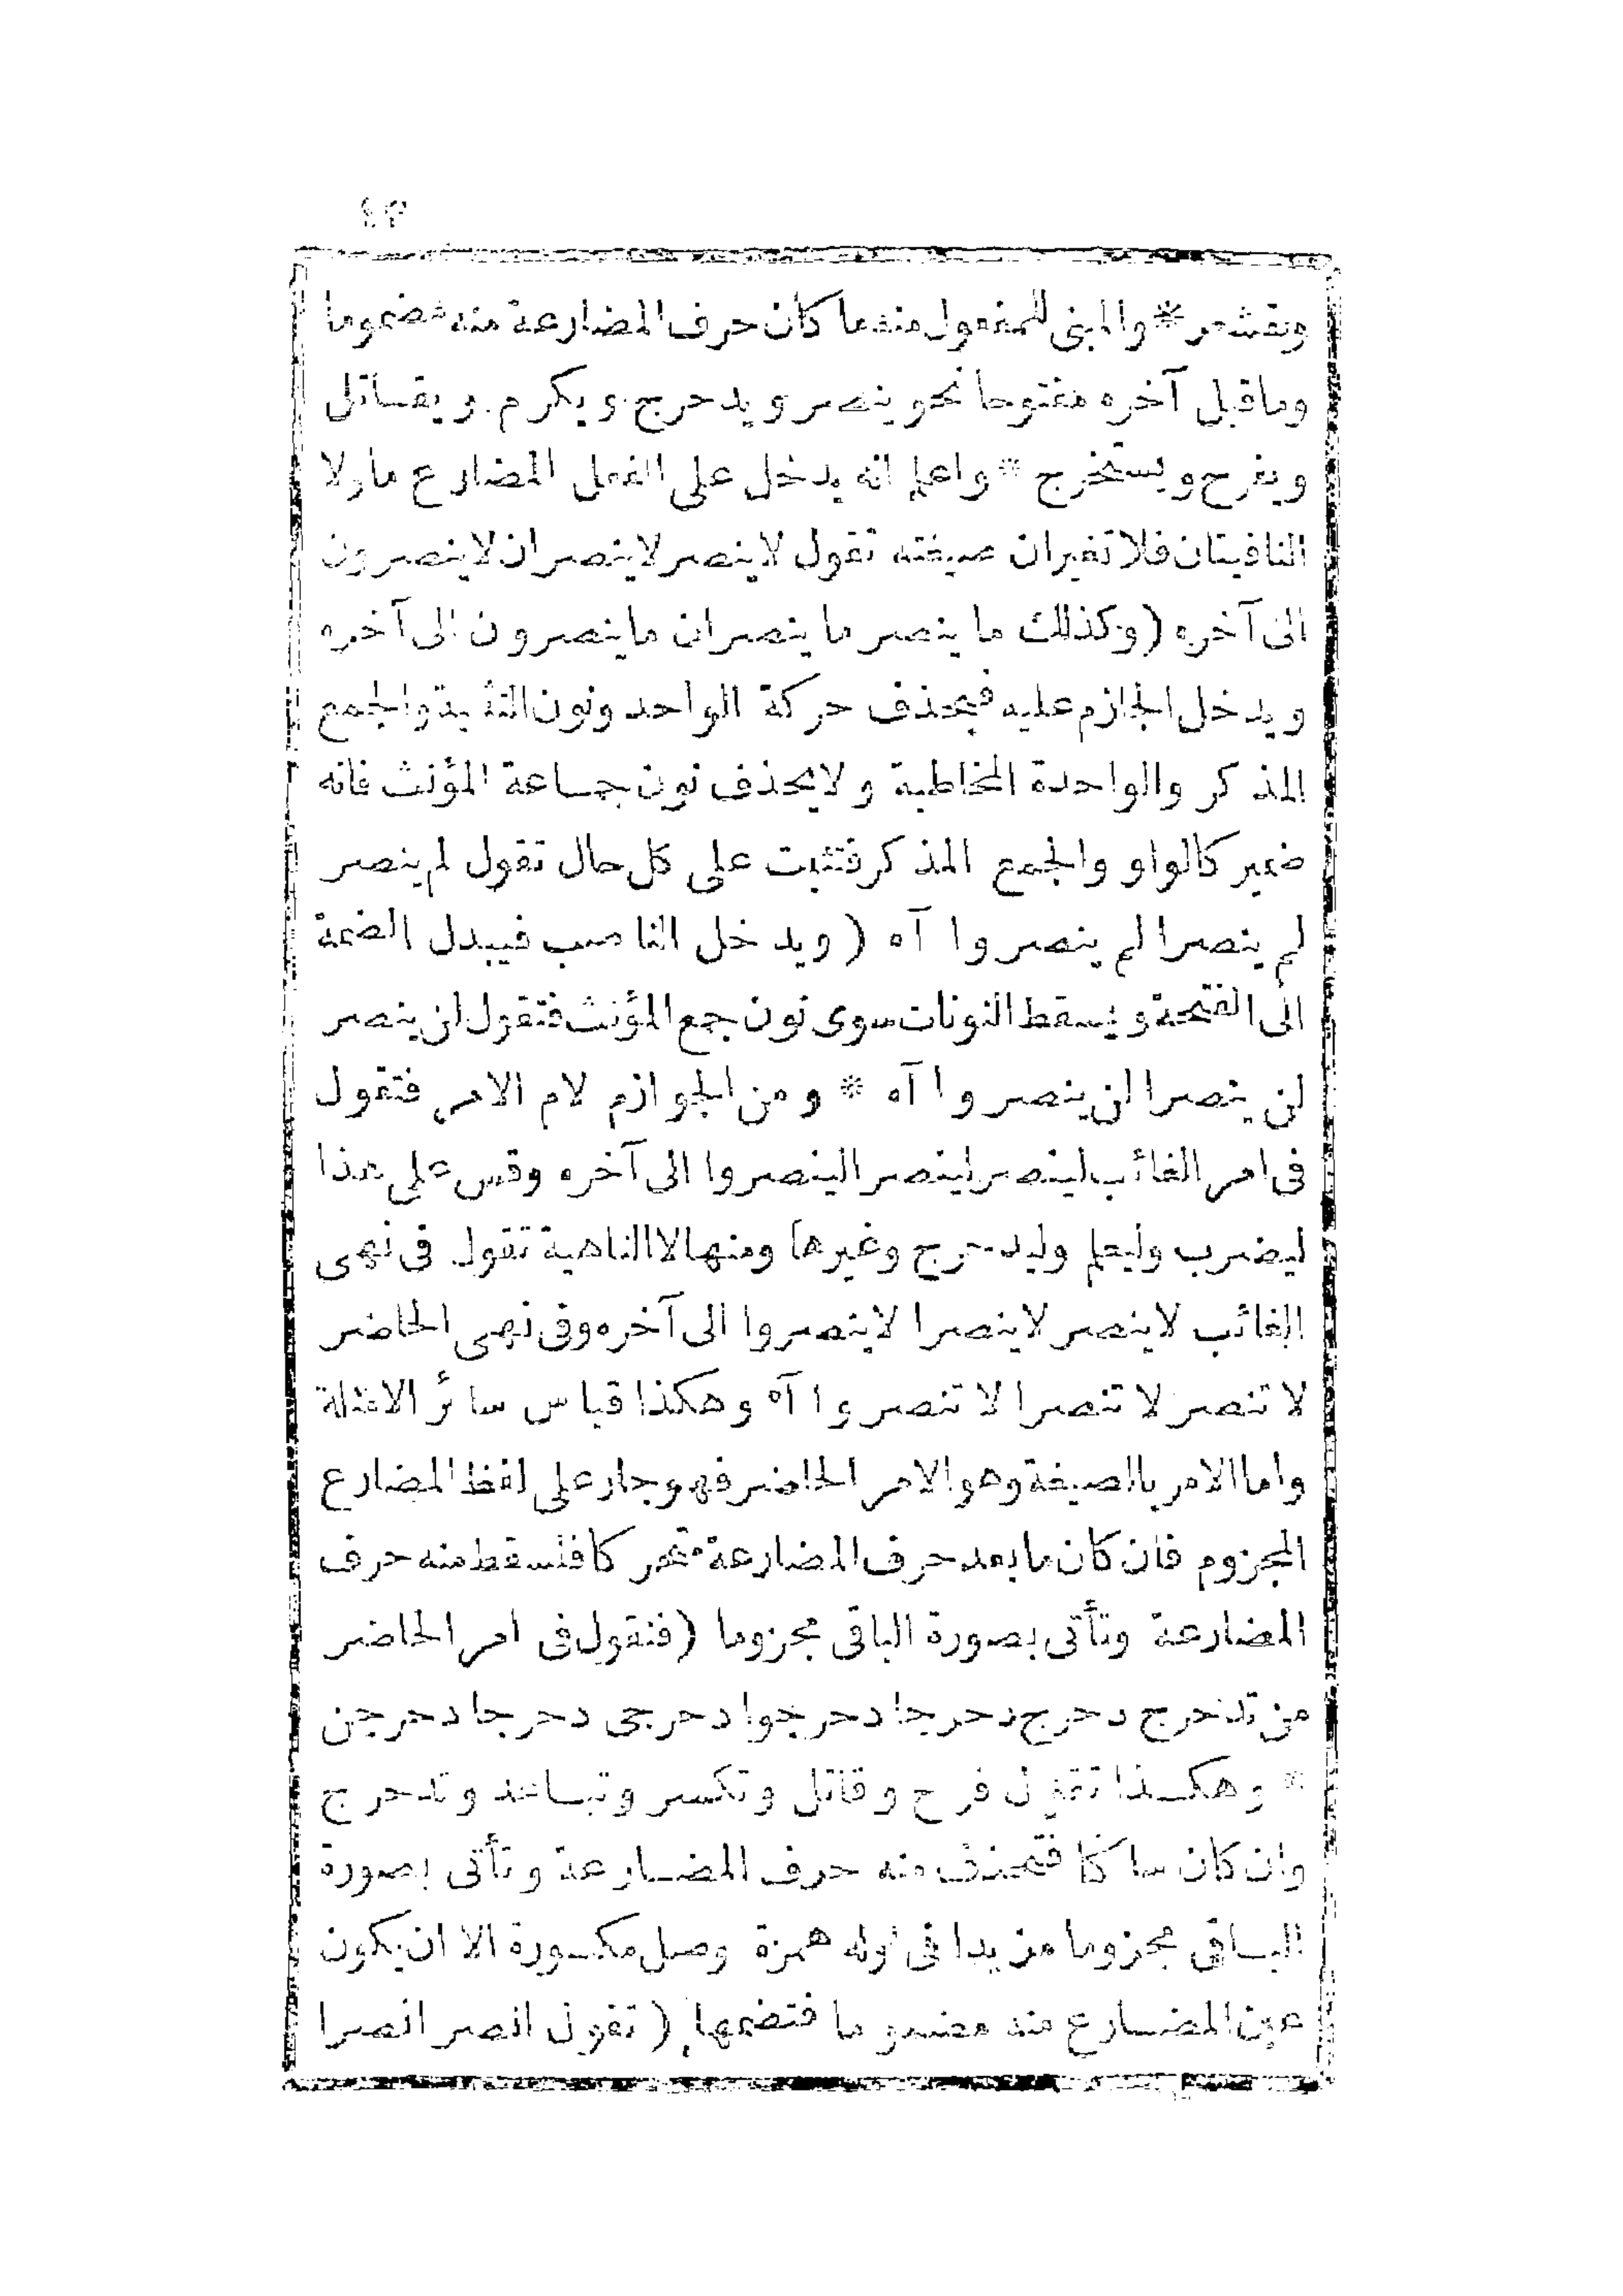 ٤٣
ويقشعر * والمبنى للمفعول منه ما كان حرف المضارعة منه مضموما
وما قبل آخره مفتوحا نحو ينصر و يدحرج و يكرم و يقاتل
و يفرح و يستخرج * واعلم انه يدخل على الفعل المضارع ما ولا
النافيتان فلا تغيران صيغته تقول لاينصر لاينصران لاينصرون
الى آخره (وكذلك ما ينصر ما ينصران ما ينصرون الى آخره
و يدخل الجازم عليه فيحذف حركة الواحد ونون التثنية والجمع
المذكر والواحدة المخاطبة و لايحذف نون جماعة المؤنث فانه
ضمير كالواو والجمع المذكر فتثبت على كل حال تقول لم ينصر
لم ينصرا لم ينصروا آه (ويدخل الناصب فيبدل الضمة
الى الفتحة و يسقط النونات سوى نون جمع المؤنث فتقول لن ينصر
لن ينصرا لن ينصروا آه * ومن الجوازم لام الامر فتقول
فى امر الغائب لينصر لينصرا لينصروا الى آخره وقس على هذا
ليضرب وليعلم وليدحرج وغيرها ومنها لا الناهية تقول فى نهى
الغائب لاينصر لاينصرا لاينصروا الى آخره وفى نهى الحاضر
لا تنصر لا تنصرا لا تنصروا آه وهكذا قياس سائر الامثلة
واما الامر بالصيغة وهو الامر الحاضر فهو جار على لفظ المضارع
المجزوم فان كان ما بعد حرف المضارعة متحركا فتسقط منه حرف
المضارعة وتأتى بصورة الباقى مجزوما (فتقول فى امر الحاضر
من تدحرج دحرج دحرجا دحرجوا دحرجى دحرجا دحرجن
* وهكذا تقول فرح وقاتل وتكسر وتباعد وتدحرج
وان كان ساكنا فتحذف منه حرف المضارعة وتأتى بصورة
الباقى مجزوما مزيدا فى اوله همزة وصل مكسورة الا ان يكون
عين المضارع منه مضموما فتضمها (تقول انصر انصرا